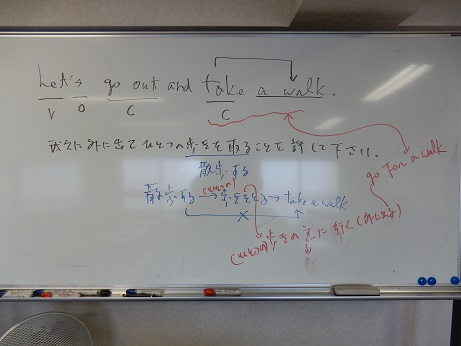 Let's go out and take a walk.
V O C C
我々に外に出てひとつの歩きを取ることを許して下さい.
散歩する
go for a walk
(ひとつの)
散歩する → 歩きをとる → take a walk
×
(ひとつの)歩きの為に行く